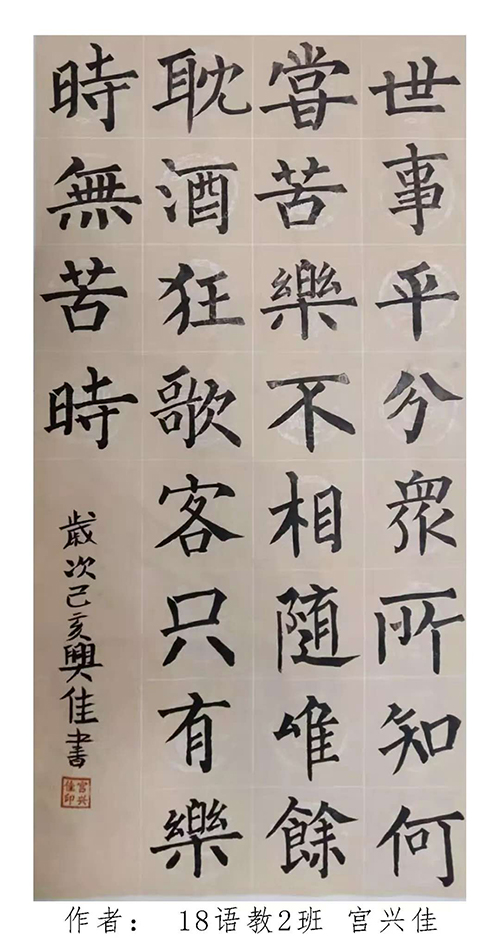 世事平分衆所知何
嘗苦樂不相隨唯餘
耽酒狂歌客只有樂
時無苦時
歲次己亥興佳書
宫兴佳印
作者： 18语教2班 宫兴佳